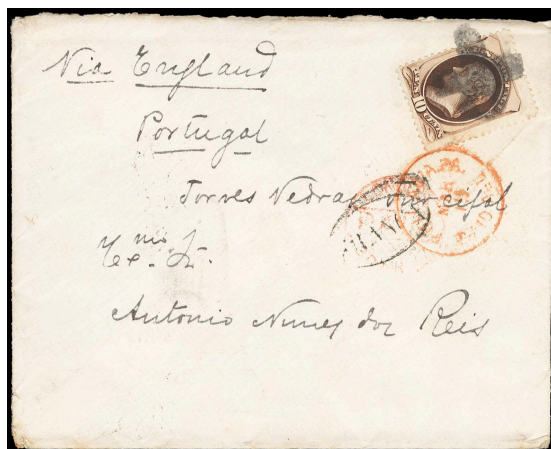 Via England
Portugal
Torres Vedras Turcifal
Exmo. Sr.
Antonio Nunes dos Reis
FRANCA
PA.
10